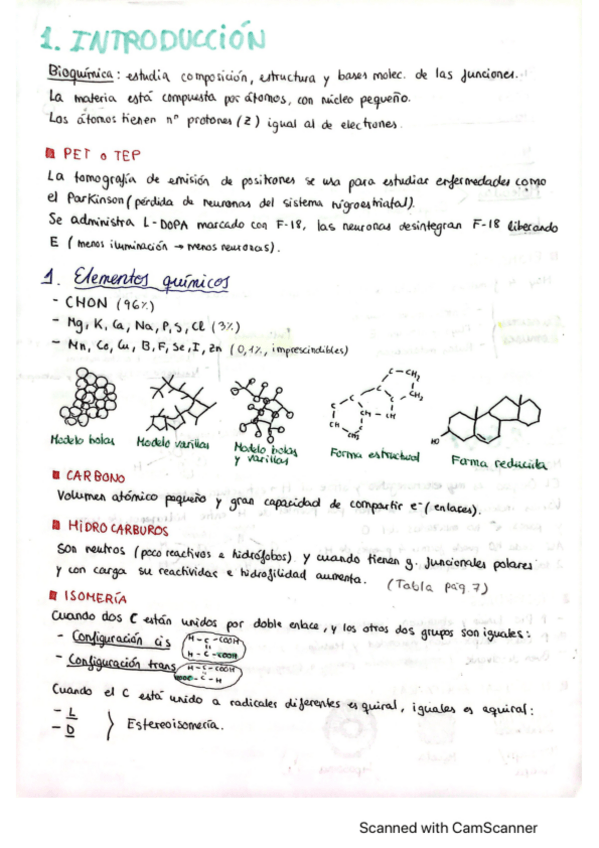 1. INTRODUCCIÓN
Bioquímica: estudia composición, estructura y bases molec. de las funciones.
La materia está compuesta por átomos, con núcleo pequeño.
Los átomos tienen nº protones (Z) igual al de electrones.
PET o TEP
La tomografía de emisión de positrones se usa para estudiar enfermedades como
el Parkinson (pérdida de neuronas del sistema nigroestriatal).
Se administra L-DOPA marcado con F-18, las neuronas desintegran F-18 liberando
E (menos iluminación → menos neuronas).
1. Elementos químicos
- CHON (96%)
- Mg, K, Ca, Na, P, S, Cl (3%)
- Mn, Co, Cu, B, F, Se, I, Zn (0,1%, imprescindibles)
C - CH2
C C CH2
C C C
CH CH - CH
CH2
HO
Modelo bolas Modelo varillas Modelo bolas y varillas Forma estructual Forma reducida
CARBONO
Volumen atómico pequeño y gran capacidad de compartir e- (enlaces).
HIDROCARBUROS
Son neutros (poco reactivos e hidrófobos) y cuando tienen g. funcionales polares
y con carga su reactividas e hidrofilidad aumenta. (Tabla pág. 7)
ISOMERÍA
Cuando dos C están unidos por doble enlace, y los otros dos grupos son iguales:
- Configuración cis H - C - COOH
H - C - COOH
- Configuración trans H - C - COOH
HOOC - C - H
Cuando el C está unido a radicales diferentes es quiral, iguales es aquiral:
- L
- D } Estereoisomería.
Scanned with CamScanner